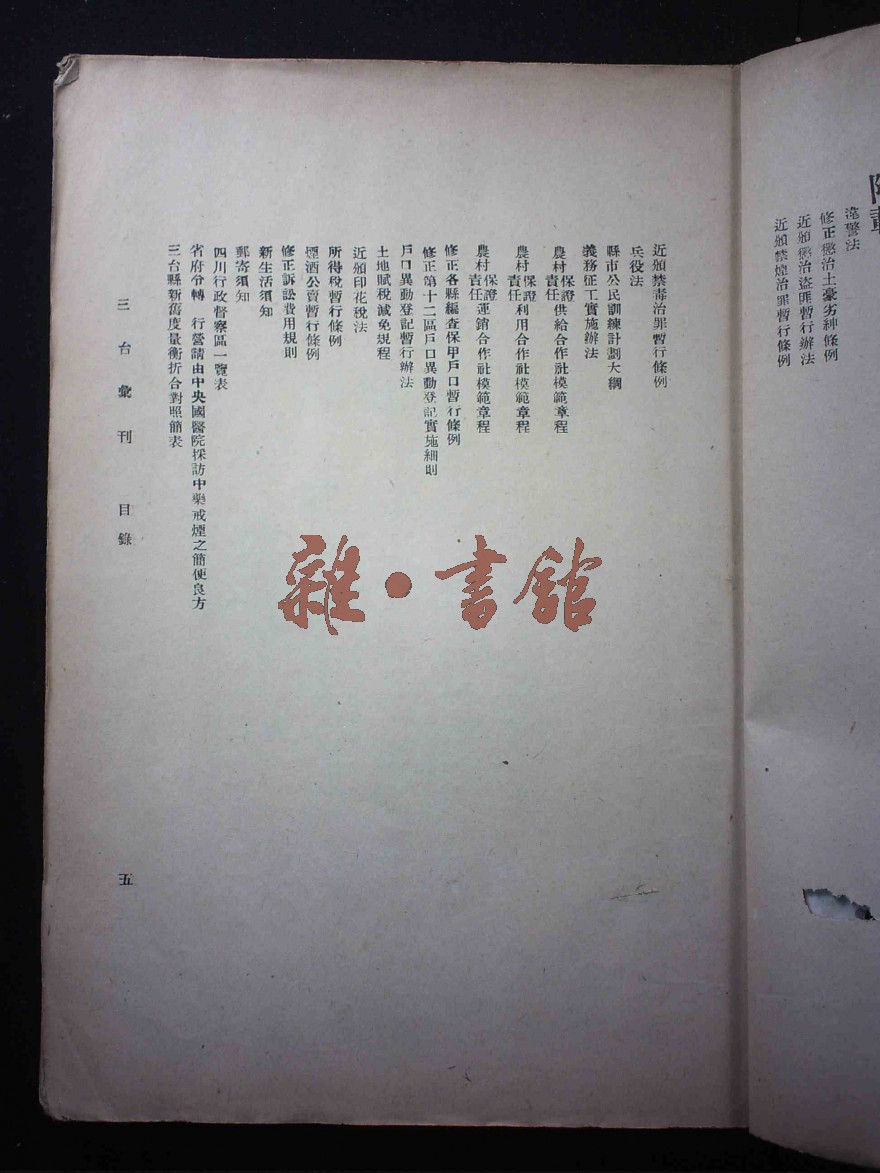 違警法
修正懲治土豪劣紳條例
近頒懲治盜匪暫行辦法
近頒禁煙治罪暫行條例
近頒禁毒治罪暫行條例
兵役法
縣市公民訓練計劃大綱
義務征工實施辦法
農村保證責任供給合作社模範章程
農村保證責任利用合作社模範章程
農村保證責任運銷合作社模範章程
修正各縣編查保甲戶口暫行條例
修正第十二區戶口異動登記實施細則
戶口異動登記暫行辦法
土地賦稅減免規程
近頒印花稅法
所得稅暫行條例
煙酒公賣暫行條例
修正訴訟費用規則
新生活須知
郵寄須知
四川行政督察區一覽表
省府令轉 行營請由中央國醫院採訪中藥戒煙之簡便良方
三台縣新舊度量衡折合對照簡表
三台彙刊 目錄 五
雜·書館